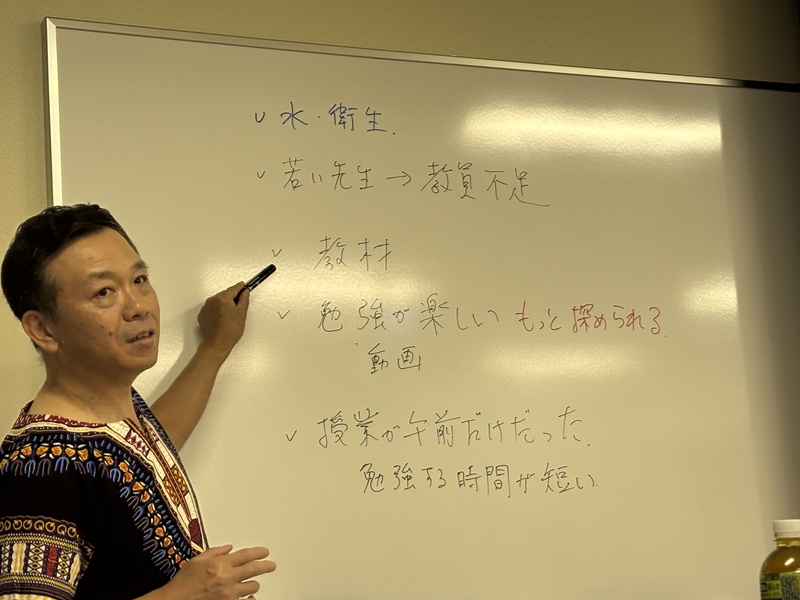 ✓ 水・衛生.
✓ 若い先生→教員不足
✓ 教材
✓ 勉強が楽しい もっと探められる.
動画
✓ 授業が午前だけだった.
勉強する時間が短い.